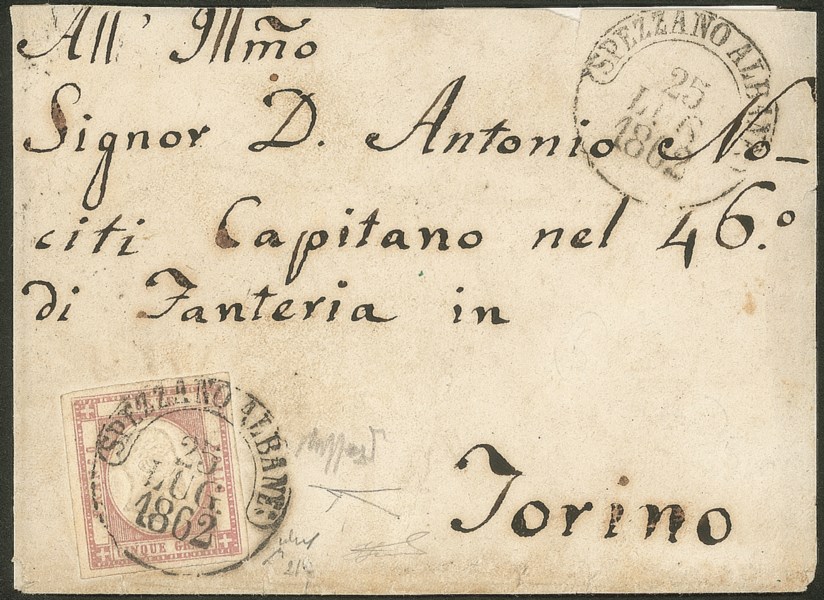 All' Illmo
SPEZZANO ALBANE
25
LUG
1862
Signor D. Antonio No-
citi Capitano nel 46.º
di Fanteria in
SPEZZANO ALBANE.
25
LUG.
1862
INQUE GRA
Torino